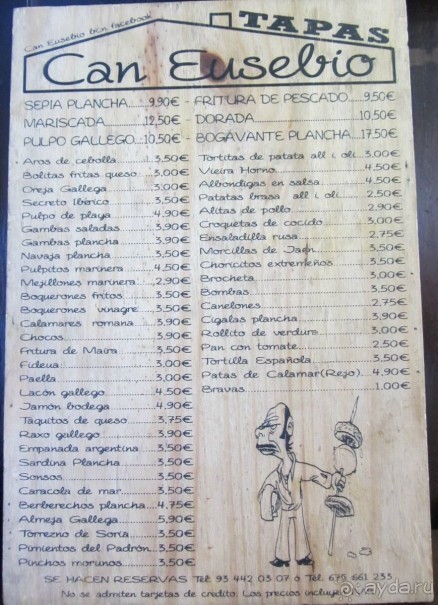 Can Eusebio bcn facebook
TAPAS
Can Eusebio
SEPIA PLANCHA......9,90€ - FRITURA DE PESCADO.....9,50€
MARISCADA.............12,50€ - DORADA.......................10,50€
PULPO GALLEGO...10,50€ - BOGAVANTE PLANCHA...17,50€
Aros de cebolla..........3,50€
Bolitas fritas queso.....3,00€
Oreja Gallega.............3,00€
Secreto Ibérico...........3,50€
Pulpo de playa............4,90€
Gambas saladas..........3,90€
Gambas plancha..........3,90€
Navaja plancha............3,50€
Pulpitos marinera.........4,50€
Mejillones marinera......2,90€
Boquerones fritos........3,50€
Boquerones vinagre.....3,50€
Calamares romana.......3,90€
Chocos......................3,90€
Fritura de Maira...........3,50€
Fideua.......................3,00€
Paella........................3,00€
Lacón gallego..............4,50€
Jamón bodega.............4,90€
Taquitos de queso........3,75€
Raxo gallego................3,90€
Empanada argentina.....3,50€
Sardina Plancha............3,50€
Sonsos.......................3,50€
Caracola de mar...........3,50€
Berberechos plancha.....4,75€
Almeja Gallega..............5,90€
Torrezno de Soria..........3,50€
Pimientos del Padrón.....3,50€
Pinchos morunos...........3,50€
Tortitas de patata all i oli...3,00€
Vieira Horno....................4,50€
Albondigas en salsa..........4,50€
Patatas brasa all i oli........2,50€
Alitas de pollo..................2,90€
Croquetas de cocido.........3,00€
Ensaladilla rusa................2,75€
Morcillas de Jaén..............3,50€
Choricitos extremeños......3,50€
Brocheta.........................3,00€
Bombas..........................3,50€
Canelones.......................2,75€
Cigalas plancha................3,90€
Rollito de verdura.............3,00€
Pan con tomate................2,50€
Tortilla Española...............3,50€
Patas de Calamar(Rejo)....4,90€
Bravas............................1,00€
SE HACEN RESERVAS Tel 93 442 03 07 ó Tel. 675 661 233
No se admiten tarjetas de crédito. Los precios incluyen